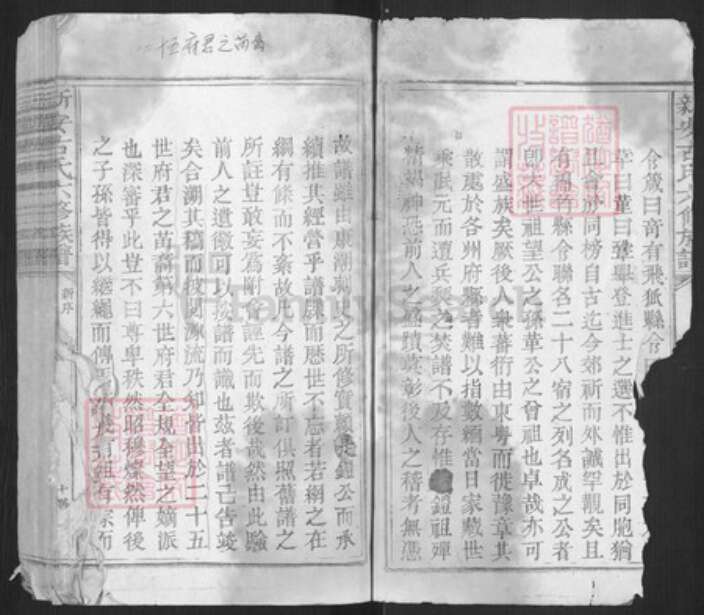 新安古氏六修族譜
令箴曰奇有飛狐縣令
曰革曰鞏舉登進士之選不惟出於同胞猶
且會於同榜自古迄今郊祈而外誠罕覯矣且
有為竹縣令聯名二十八宿之列名成之公者
即六世祖望公之孫華公之曾祖也卓哉亦可
謂盛族矣厥後人衆蕃衍由東粤而徙豫章其
散處於各州府縣者難以指數緬當日家藏世
乘戡元而遭兵燹之焚譜不及存惟 鐙祖殫
精竭神恐前人之盛蹟莫彰後人之稽考無憑
二十五府君之苗裔
故譜雖由康湖刺史之所修實賴 鐙公而承
續推其經營乎譜牒而歷世不忘者若網之在
綱有條而不紊故此今譜之所訂俱照舊譜之
所註豈敢妄為附會誣先而欺後哉然由此驗
前人之遺徽可以按譜而識也茲者譜已告竣
矣合溯其稿而披閱源流乃知皆出於二十五
世府君之苗裔第六世府君全規全望之嫡派
也深審乎此豈不曰尊卑秩然昭穆燦然俾後
之子孫皆得以繼繩而傳 有祖有宗而
新安古氏六修族譜
新序